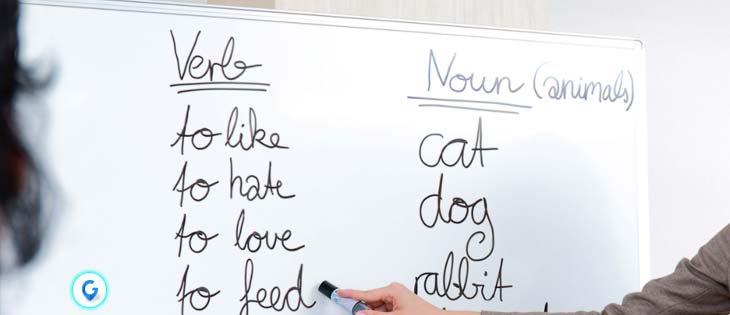 Verb
to like
to hate
to love
to feed
Noun (animals)
cat
dog
rabbit